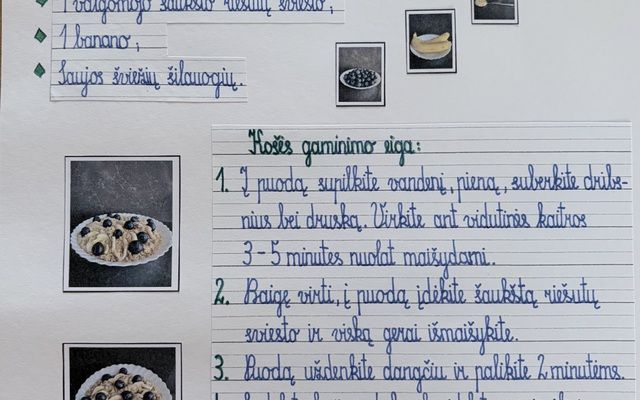 1 valgomojo šaukšto riešutų sviesto;
1 banano;
Saujos šviežių šilauogių.
Košės gaminimo eiga:
1. Į puodą supilkite vandenį, pieną, suberkite dribs-
nius bei druską. Virkite ant vidutinės kaitros
3-5 minutes nuolat maišydami.
2. Baigę virti, į puodą įdėkite šaukštą riešutų
sviesto ir viską gerai išmaišykite.
3. Puodą uždenkite dangčiu ir palikite 2 minutėms.